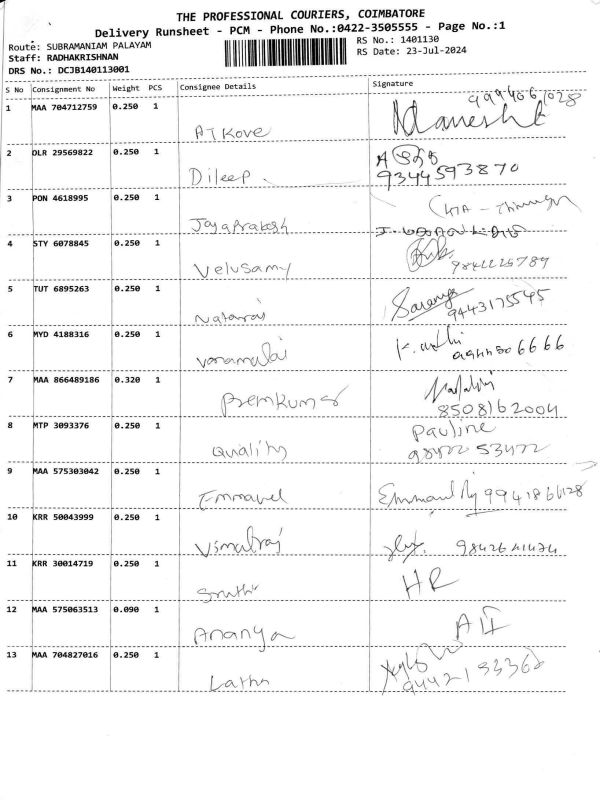 THE PROFESSIONAL COURIERS, COIMBATORE
Delivery Runsheet - PCM - Phone No.:0422-3505555 - Page No.:1
Route: SUBRAMANIAM PALAYAM
RS No.: 1401130
Staff: RADHAKRISHNAN
RS Date: 23-Jul-2024
DRS No.: DCJB140113001
S No Consignment No Weight PCS Consignee Details Signature
1 MAA 704712759 0.250 1
2 DLR 29569822 0.250 1 Dileep. 9344593870
3 PON 4618995 0.250 1 Jayaprakash
4 STY 6078845 0.250 1 Velusamy 9842225789
5 TUT 6895263 0.250 1 Nataraj Saranya 9443175545
6 MYD 4188316 0.250 1
7 MAA 866489186 0.320 1 Premkumar 8508162004
8 MTP 3093376 0.250 1 Quality Pauline
9 MAA 575303042 0.250 1 Emmavel
10 KRR 50043999 0.250 1 Vimalraj
11 KRR 30014719 0.250 1 HR
12 MAA 575063513 0.090 1 Ananya
13 MAA 704827016 0.250 1 Latha